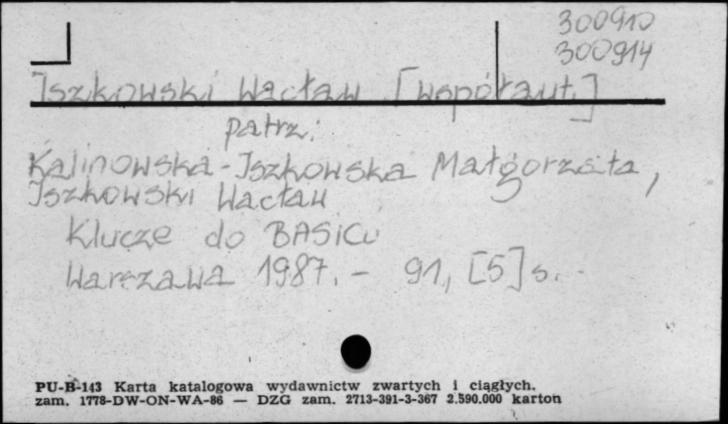 300910
300914
Iszkowski Wacław [współaut.]
patrz:
Kalinowska-Iszkowska Małgorzata,
Iszkowski Wacław
Klucze do BASICu
Warszawa 1987. - 91, [5] s. -
PU-B-143 Karta katalogowa wydawnictw zwartych i ciągłych.
zam. 1778-DW-ON-WA-86 — DZG zam. 2713-391-3-367 2.590.000 karton